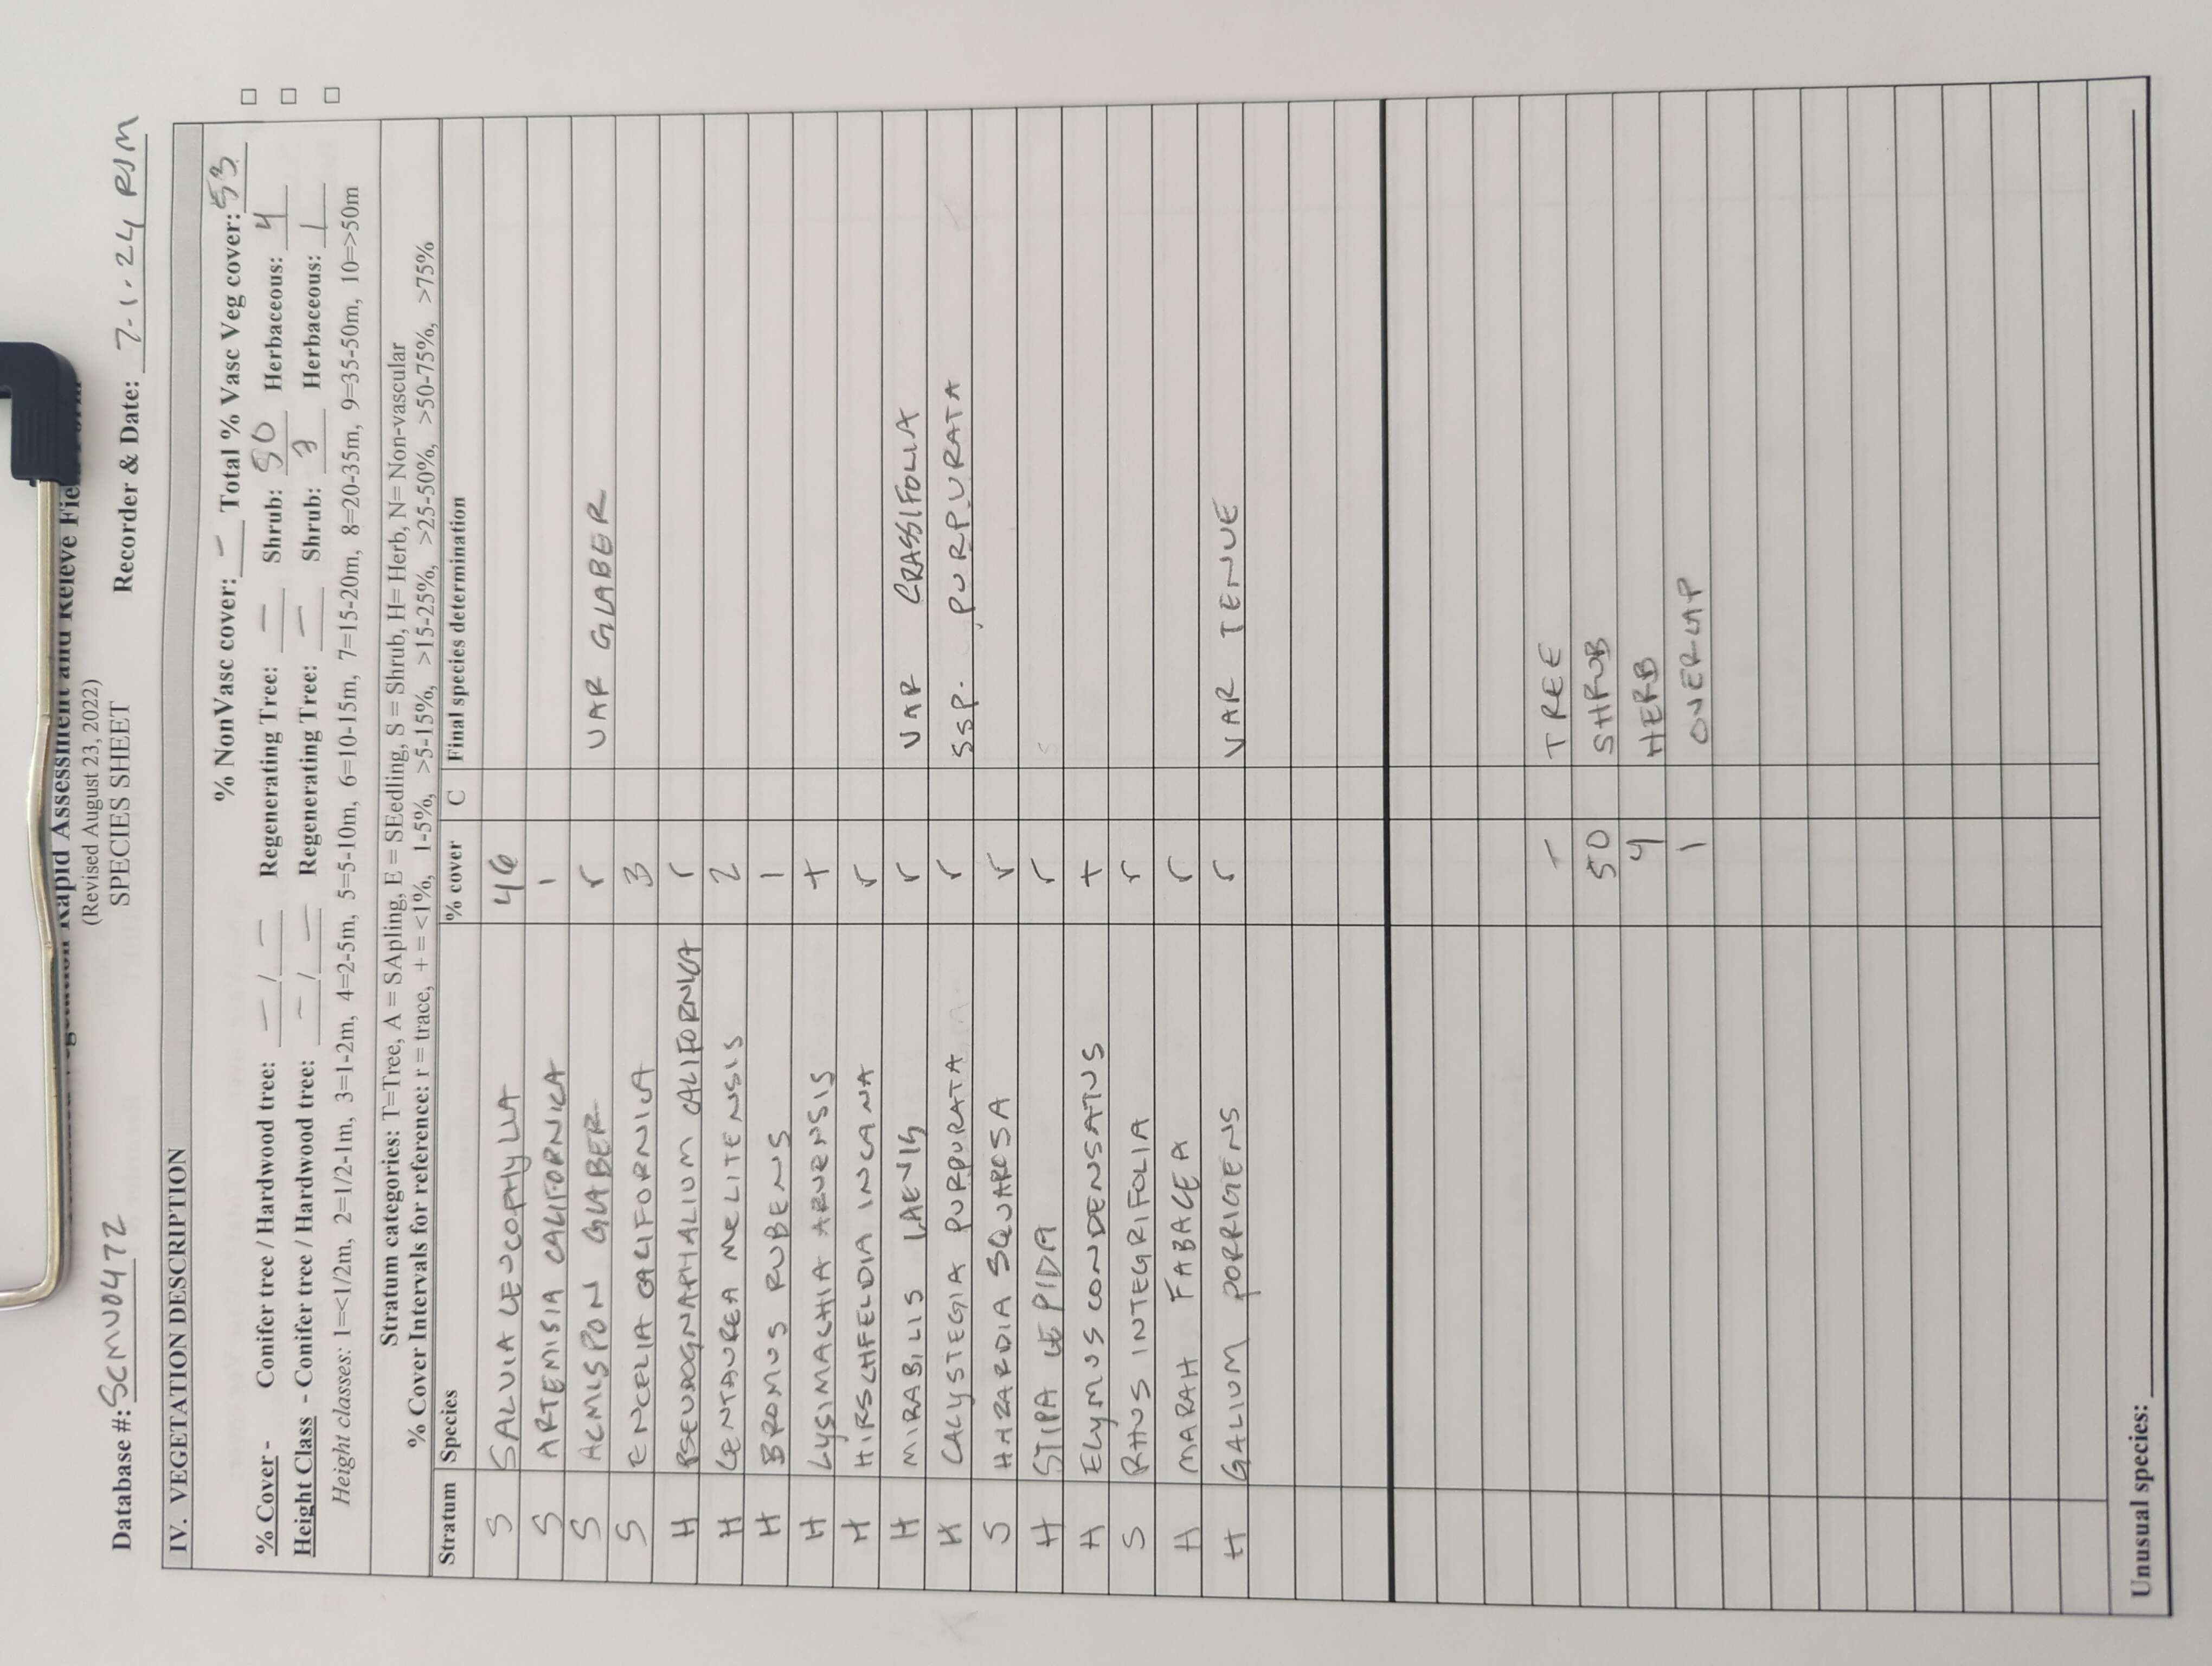 Rapid Assessment and Relevé
(Revised August 23, 2022)
SPECIES SHEET
Database #: SCMU0472 Recorder & Date: 7-1-24 RJM
IV. VEGETATION DESCRIPTION
% NonVasc cover: – Total % Vasc Veg cover: 53
% Cover - Conifer tree / Hardwood tree: – / – Regenerating Tree: – Shrub: 50 Herbaceous: 4
Height Class - Conifer tree / Hardwood tree: – / – Regenerating Tree: – Shrub: 3 Herbaceous: 1
Height classes: 1=<1/2m, 2=1/2-1m, 3=1-2m, 4=2-5m, 5=5-10m, 6=10-15m, 7=15-20m, 8=20-35m, 9=35-50m, 10=>50m
Stratum categories: T=Tree, A = SApling, E = SEedling, S = Shrub, H= Herb, N= Non-vascular
% Cover Intervals for reference: r = trace, + = <1%, 1-5%, >5-15%, >15-25%, >25-50%, >50-75%, >75%
Stratum Species % cover C Final species determination
S SALVIA LEUCOPHYLLA 46
S ARTEMISIA CALIFORNICA 1
S ACMISPON GLABER r VAR GLABER
S ENCELIA CALIFORNICA 3
H PSEUDOGNAPHALIUM CALIFORNICA r
H CENTAUREA MELITENSIS 2
H BROMUS RUBENS 1
H LYSIMACHIA ARVENSIS +
H HIRSCHFELDIA INCANA r
H MIRABILIS LAEVIS r VAR CRASSIFOLIA
H CALYSTEGIA PURPURATA r SSP. PURPURATA
S HAZARDIA SQUARROSA r
H STIPA LEPIDA r
H ELYMUS CONDENSATUS +
S RHUS INTEGRIFOLIA r
H MARAH FABACEA r
H GALIUM PORRIGENS r VAR TENUE
– TREE
50 SHRUB
4 HERB
1 OVERLAP
Unusual species: